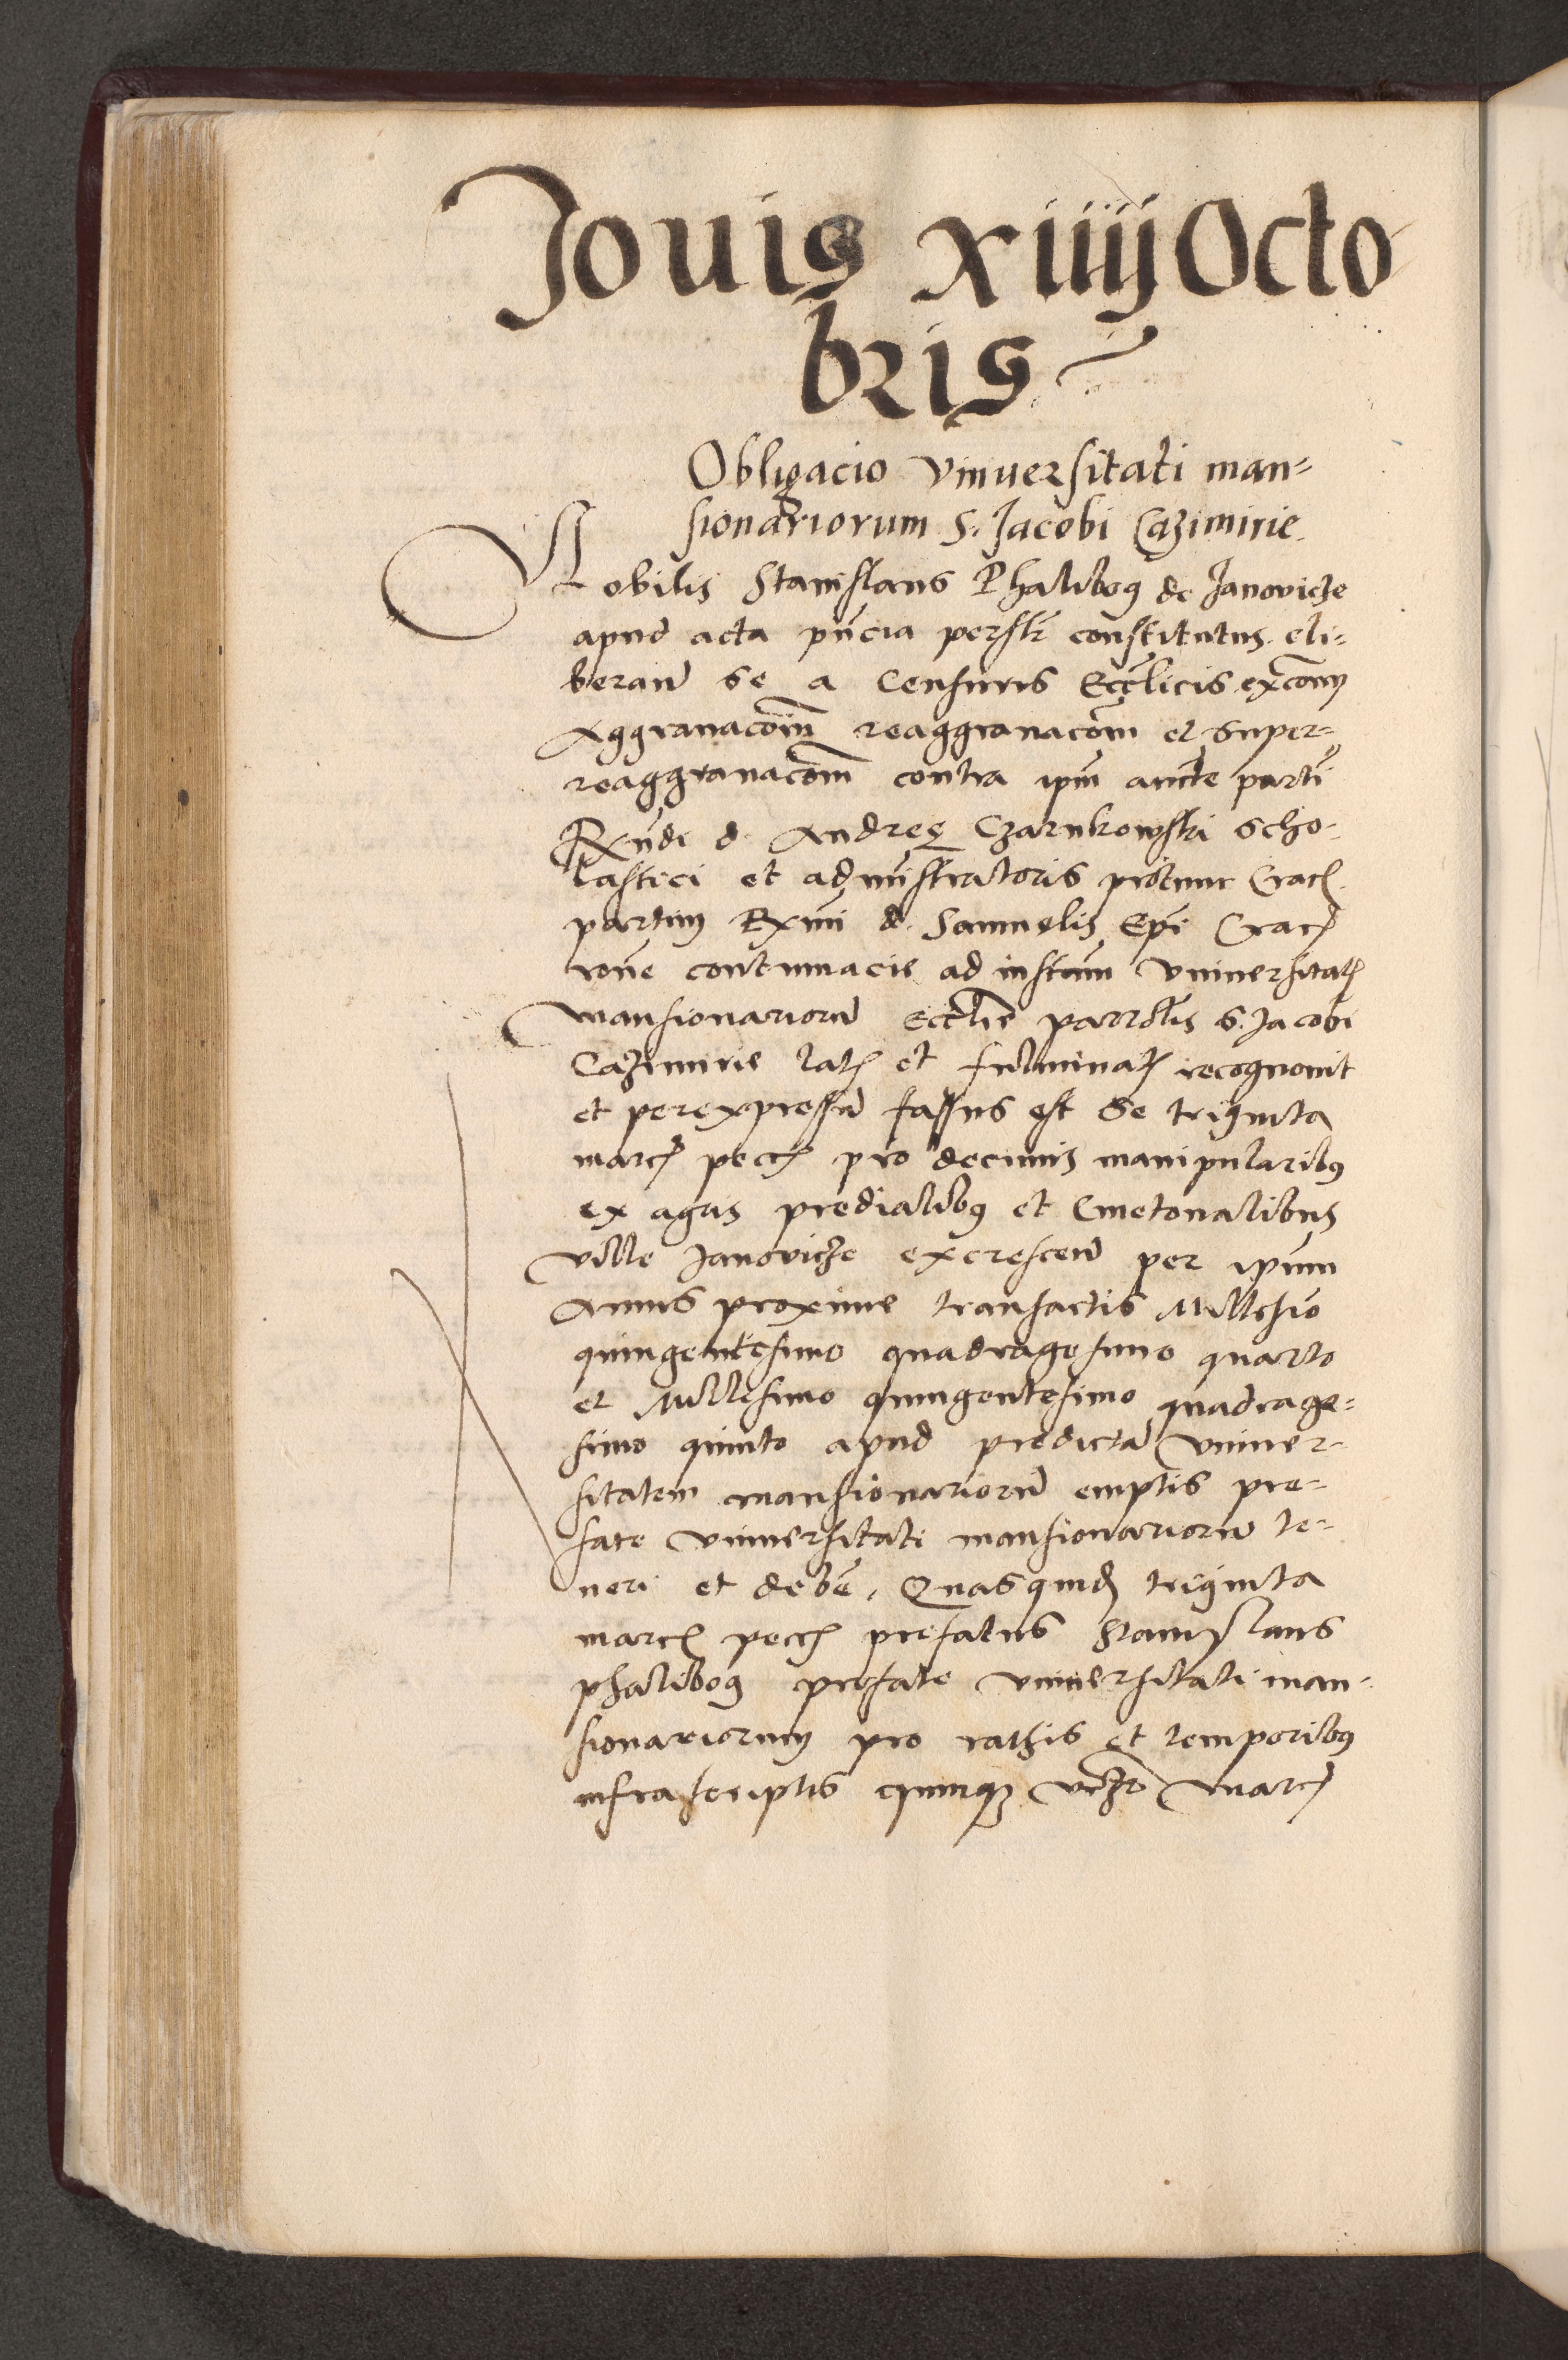 Jouis xiiij Octo
bris
Obligacio Vniuersitati man=
sionariorum S. Jacobi Cazimirie.
Nobilis Stanislaus Phalibog de Janovicze
apud acta pñcia persłr constitutus eli=
berand se a Censuris Eccłicis, excom̃
Aggrauacom̃ reaggrauacom̃ et super=
reaggrauacom̃ contra ipm̃ aucte partĩ
Rxñdi d. Andreę Czarnkowski scho=
lastici et administratoris protunc Crac
partim Rxmi d. Samuelis Epi Crac
rone contumacie ad instam̃ Vniuersitat
mansionariorũ Ecclie parrolis S. Jacobi
Cazimirie lat et fulminat recognouit
et per expressũ fassus est se triginta
marc pecc pro decimis manipularibus
ex agris predialibus et Cmetonalibus
Ville Janovicze excrescen per ipsum
Annis proxime transactis Millesio
quingentesimo quadragesimo quarto
et Millesimo quingentesimo quadrage=
simo quinto apud predictã Vniuer=
sitatem mansionariorũ emptis pre=
fate Vniuersitati mansionariorũ te=
neri et debẽ. Quasquid triginta
marc pecc prefatus Stanislaus
phalibog prefate Vniuersitati man=
sionariorum pro rathis et temporibus
infrascriptis quinque marc